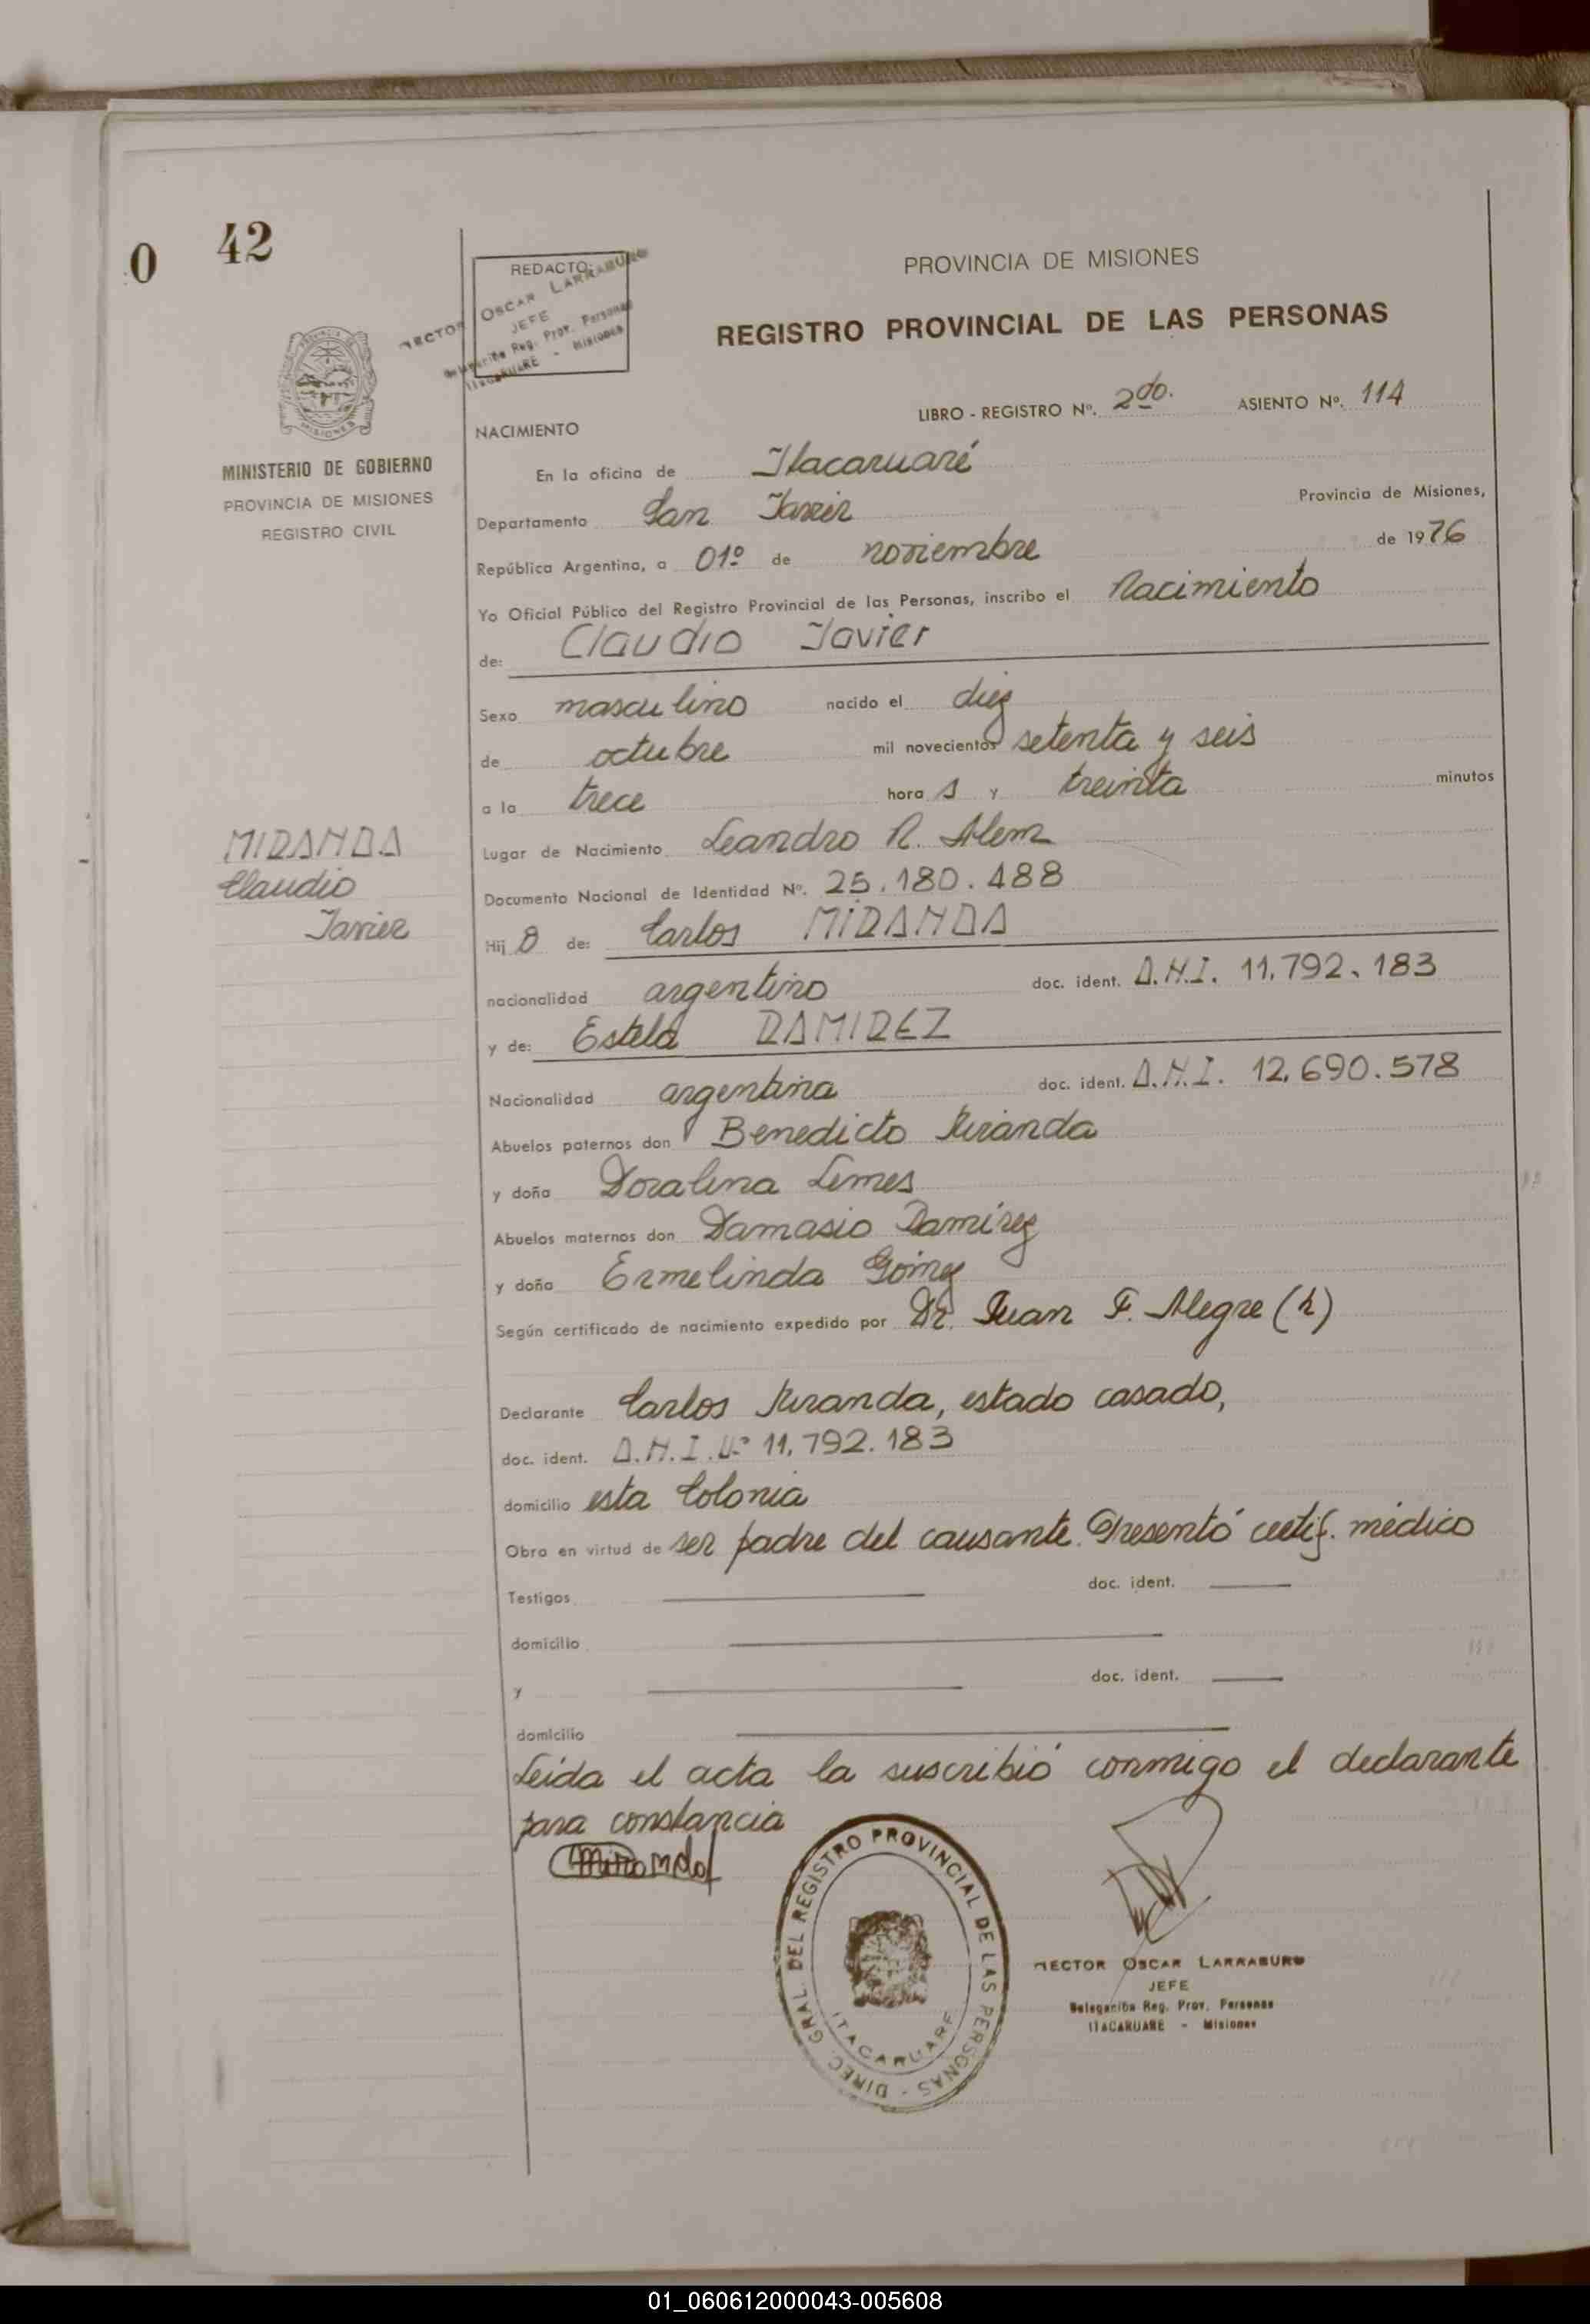 0 42
REDACTO:
HECTOR OSCAR LARRABURO
JEFE
Delegación Reg. Prov. Personas
ITACARUARE - Misiones
PROVINCIA DE MISIONES
REGISTRO PROVINCIAL DE LAS PERSONAS
LIBRO - REGISTRO Nº. 2do. ASIENTO Nº. 114
MINISTERIO DE GOBIERNO
PROVINCIA DE MISIONES
REGISTRO CIVIL
NACIMIENTO
En la oficina de Itacaruaré
Departamento San Javier Provincia de Misiones,
República Argentina, a 01º de noviembre de 1976
Yo Oficial Público del Registro Provincial de las Personas, inscribo el Nacimiento
de: Claudio Javier
Sexo masculino nacido el diez
de octubre mil novecientos setenta y seis
a la trece hora s y treinta minutos
MIRANDA
Claudio
Javier
Lugar de Nacimiento Leandro N. Alem
Documento Nacional de Identidad Nº. 25.180.488
Hij o de: Carlos MIRANDA
nacionalidad argentino doc. ident. D.N.I. 11.792.183
y de: Estela RAMIREZ
Nacionalidad argentina doc. ident. D.N.I. 12.690.578
Abuelos paternos don Benedicto Miranda
y doña Doralina Limes
Abuelos maternos don Damasio Ramírez
y doña Ermelinda Gómez
Según certificado de nacimiento expedido por Dr. Juan F. Alegre (h)
Declarante Carlos Miranda, estado casado,
doc. ident. D.N.I. Nº 11.792.183
domicilio esta Colonia
Obra en virtud de ser padre del causante. Presentó certif. médico
Testigos doc. ident.
domicilio
y doc. ident.
domicilio
Leída el acta la suscribió conmigo el declarante
para constancia
Miranda
DIREC. GRAL. DEL REGISTRO PROVINCIAL DE LAS PERSONAS
ITACARUARE
HECTOR OSCAR LARRABURO
JEFE
Delegación Reg. Prov. Personas
ITACARUARE - Misiones
01_060612000043-005608